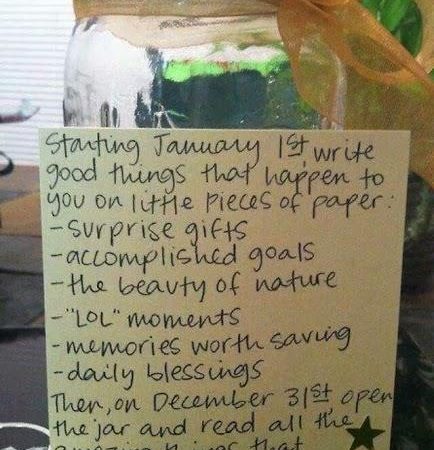 Starting January 1st, write
good things that happen to
you on little pieces of paper:
-surprise gifts
-accomplished goals
-the beauty of nature
-"LOL" moments
-memories worth saving
-daily blessings
Then, on December 31st, open
the jar and read all the
amazing things that